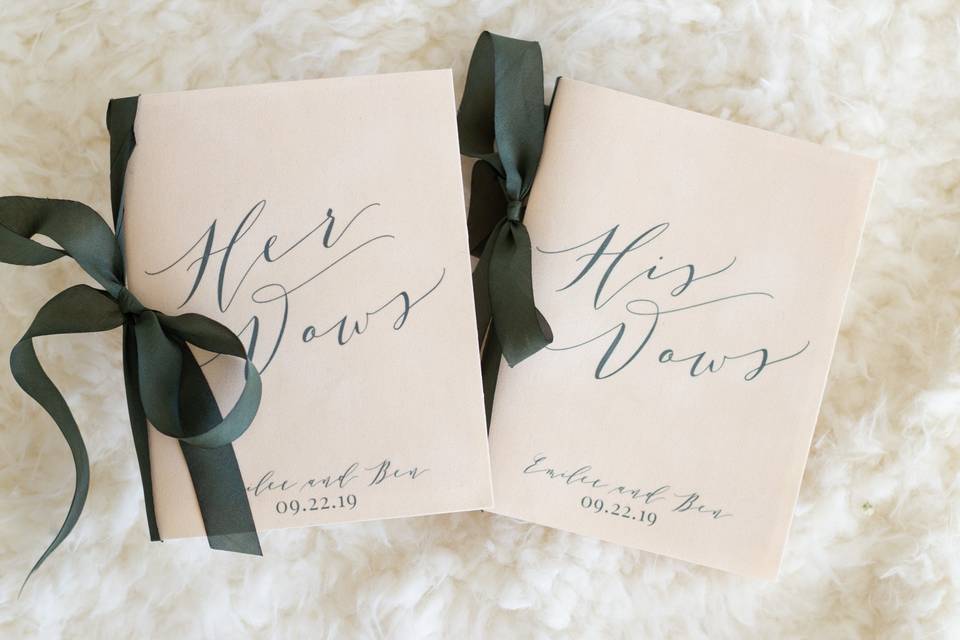 Her
Vows
and Ben
09.22.19
His
Vows
Emilee and Ben
09.22.19